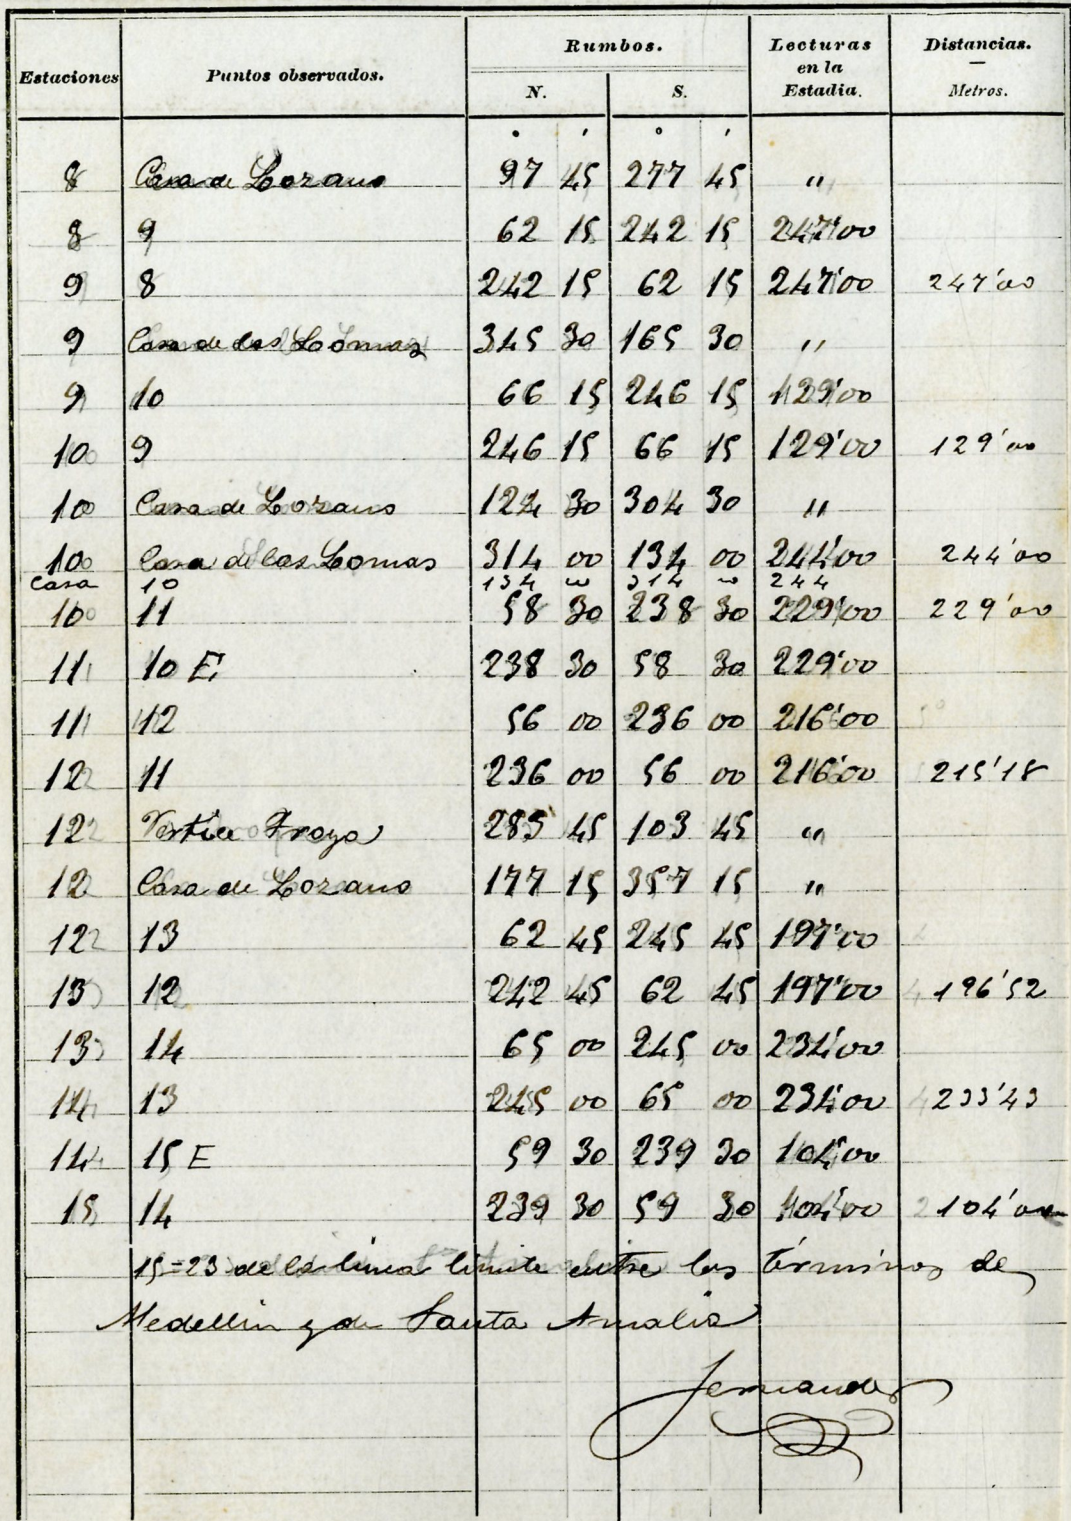 Estaciones Puntos observados. Rumbos. Lecturas en la Estadia. Distancias. — Metros.
N. S.
° ' ° '
8 Casa de Lozano 97 45 277 45 "
8 9 62 15 242 15 247'00
9 8 242 15 62 15 247'00 247'00
9 Casa de las Lomas 345 30 165 30 "
9 10 66 15 246 15 129'00
10 9 246 15 66 15 129'00 129'00
10 Casa de Lozano 124 30 304 30 "
10 Casa de las Lomas 314 00 134 00 244'00 244'00
Casa 10 134 00 314 00 244
10 11 58 30 238 30 229'00 229'00
11 10 E 238 30 58 30 229'00
11 12 56 00 236 00 216'00
12 11 236 00 56 00 216'00 215'18
12 Vertice 283 45 103 45 "
12 Casa de Lozano 177 15 357 15 "
12 13 62 45 245 45 197'00
13 12 242 45 62 45 197'00 196'52
13 14 65 00 245 00 234'00
14 13 245 00 65 00 234'00 233'43
14 15 E 59 30 239 30 104'00
15 14 239 30 59 30 104'00 104'00
15=23 de la linea limite entre los términos de
Medellin y de Santa Amalia